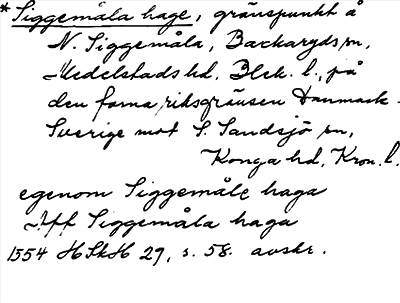 * Siggemåla hage, gränspunkt å
N. Siggemåla, Backaryds sn,
Medelstads hd. Blek. l., på
den forna riksgränsen Danmark -
Sverige mot S. Sandsjö sn,
Konga hd, Kron. l.
egenom Siggemåle haga
Siggemåla haga
1554 HSkH 29, s. 58. avskr.